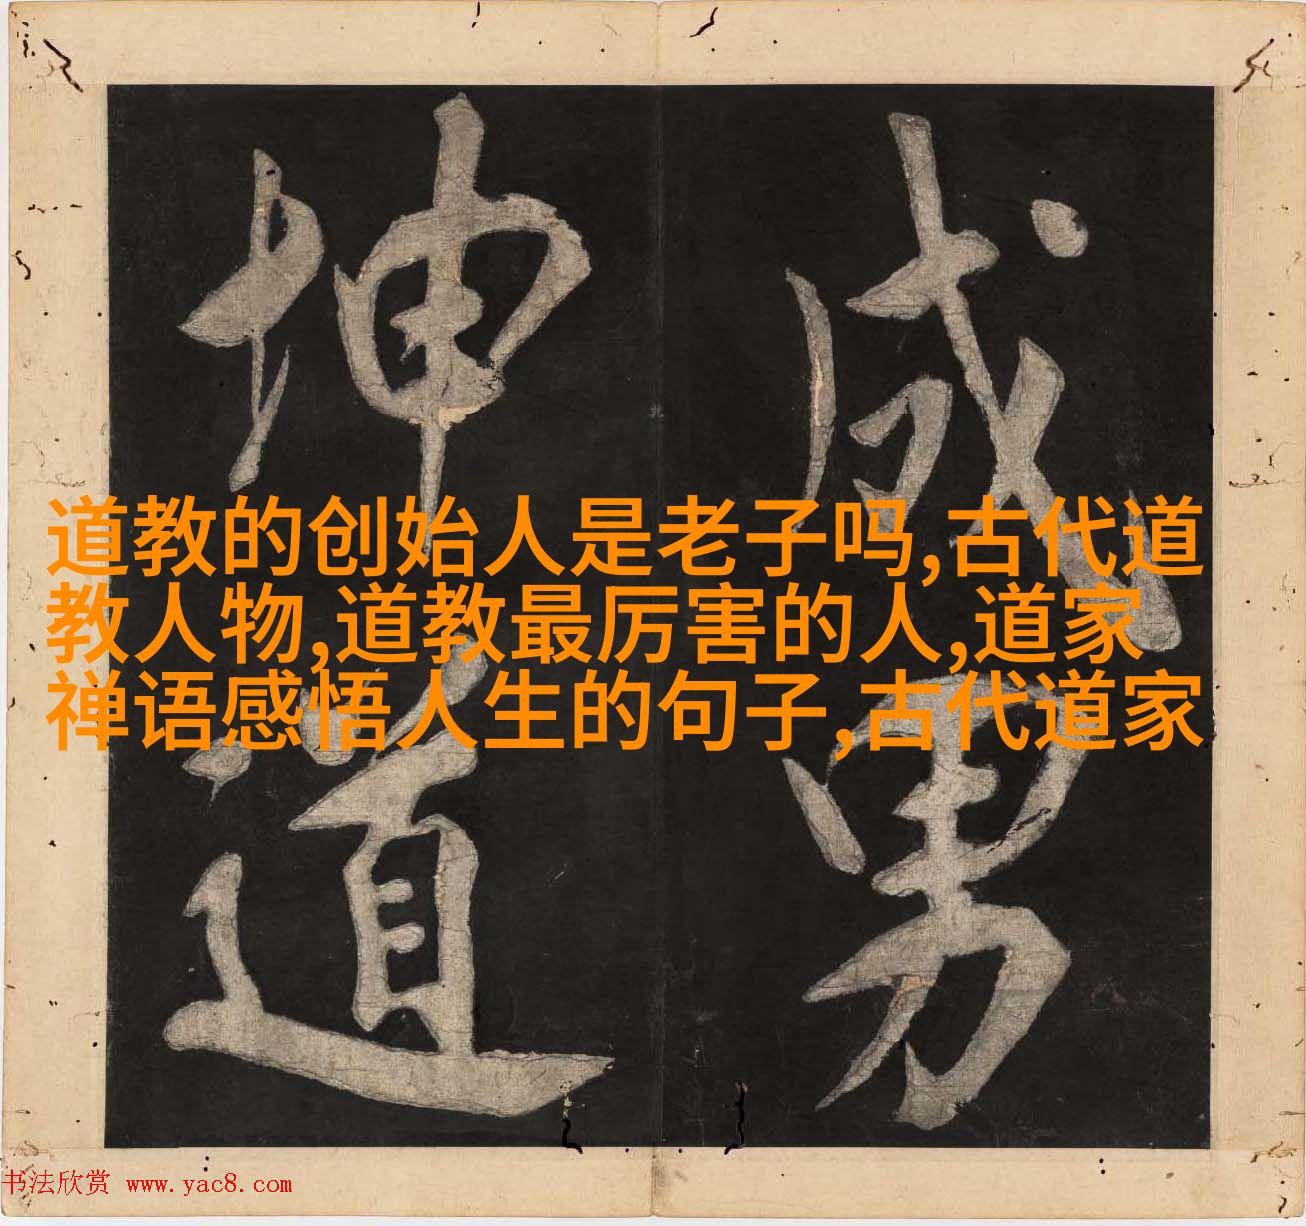 成男
坤道
道教的创始人是老子吗,古代道
教人物,道教最厉害的人,道家
禅语感悟人生的句子,古代道家
书法欣赏 www.yac8.com